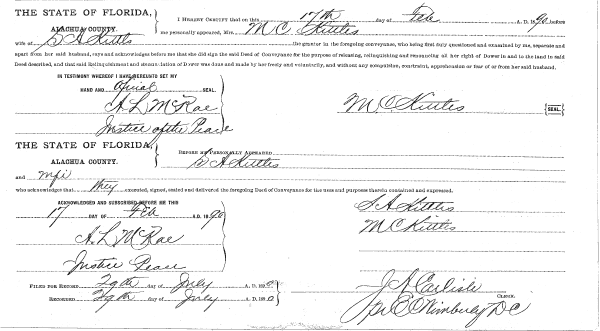 THE STATE OF FLORIDA,
ALACHUA COUNTY.
I HEREBY CERTIFY that on this 17th day of Feb A. D. 1890 before
me personally appeared, Mrs. M C Kittles
wife of S A Kittles the grantor in the foregoing conveyance, who being first duly questioned and examined by me, separate and
apart from her said husband, says and acknowledges before me that she did sign the said Deed of Conveyance for the purpose of releasing, relinquishing and renouncing all her right of Dower in and to the land in said
Deed described, and that said Relinquishment and renunciation of Dower was done and made by her freely and voluntarily, and without any compulsion, constraint, apprehension or fear of or from her said husband.
IN TESTIMONY WHEREOF I HAVE HEREUNTO SET MY
HAND AND Official SEAL.
A. L. McRae
M C Kittles {SEAL.}
Justice of the Peace
THE STATE OF FLORIDA,
ALACHUA COUNTY.
BEFORE ME PERSONALLY APPEARED
S A Kittles
and wife
who acknowledges that they executed, signed, sealed and delivered the foregoing Deed of Conveyance for the uses and purposes therein contained and expressed.
ACKNOWLEDGED AND SUBSCRIBED BEFORE ME THIS
17 DAY OF Feb A.D. 1890
S A Kittles
M C Kittles
A. L. McRae
Justice Peace
FILED FOR RECORD 29th day of July A. D. 1890
RECORDED 29th day of July A. D. 1890
J A Carlisle
CLERK.
per E O Wimberly DC